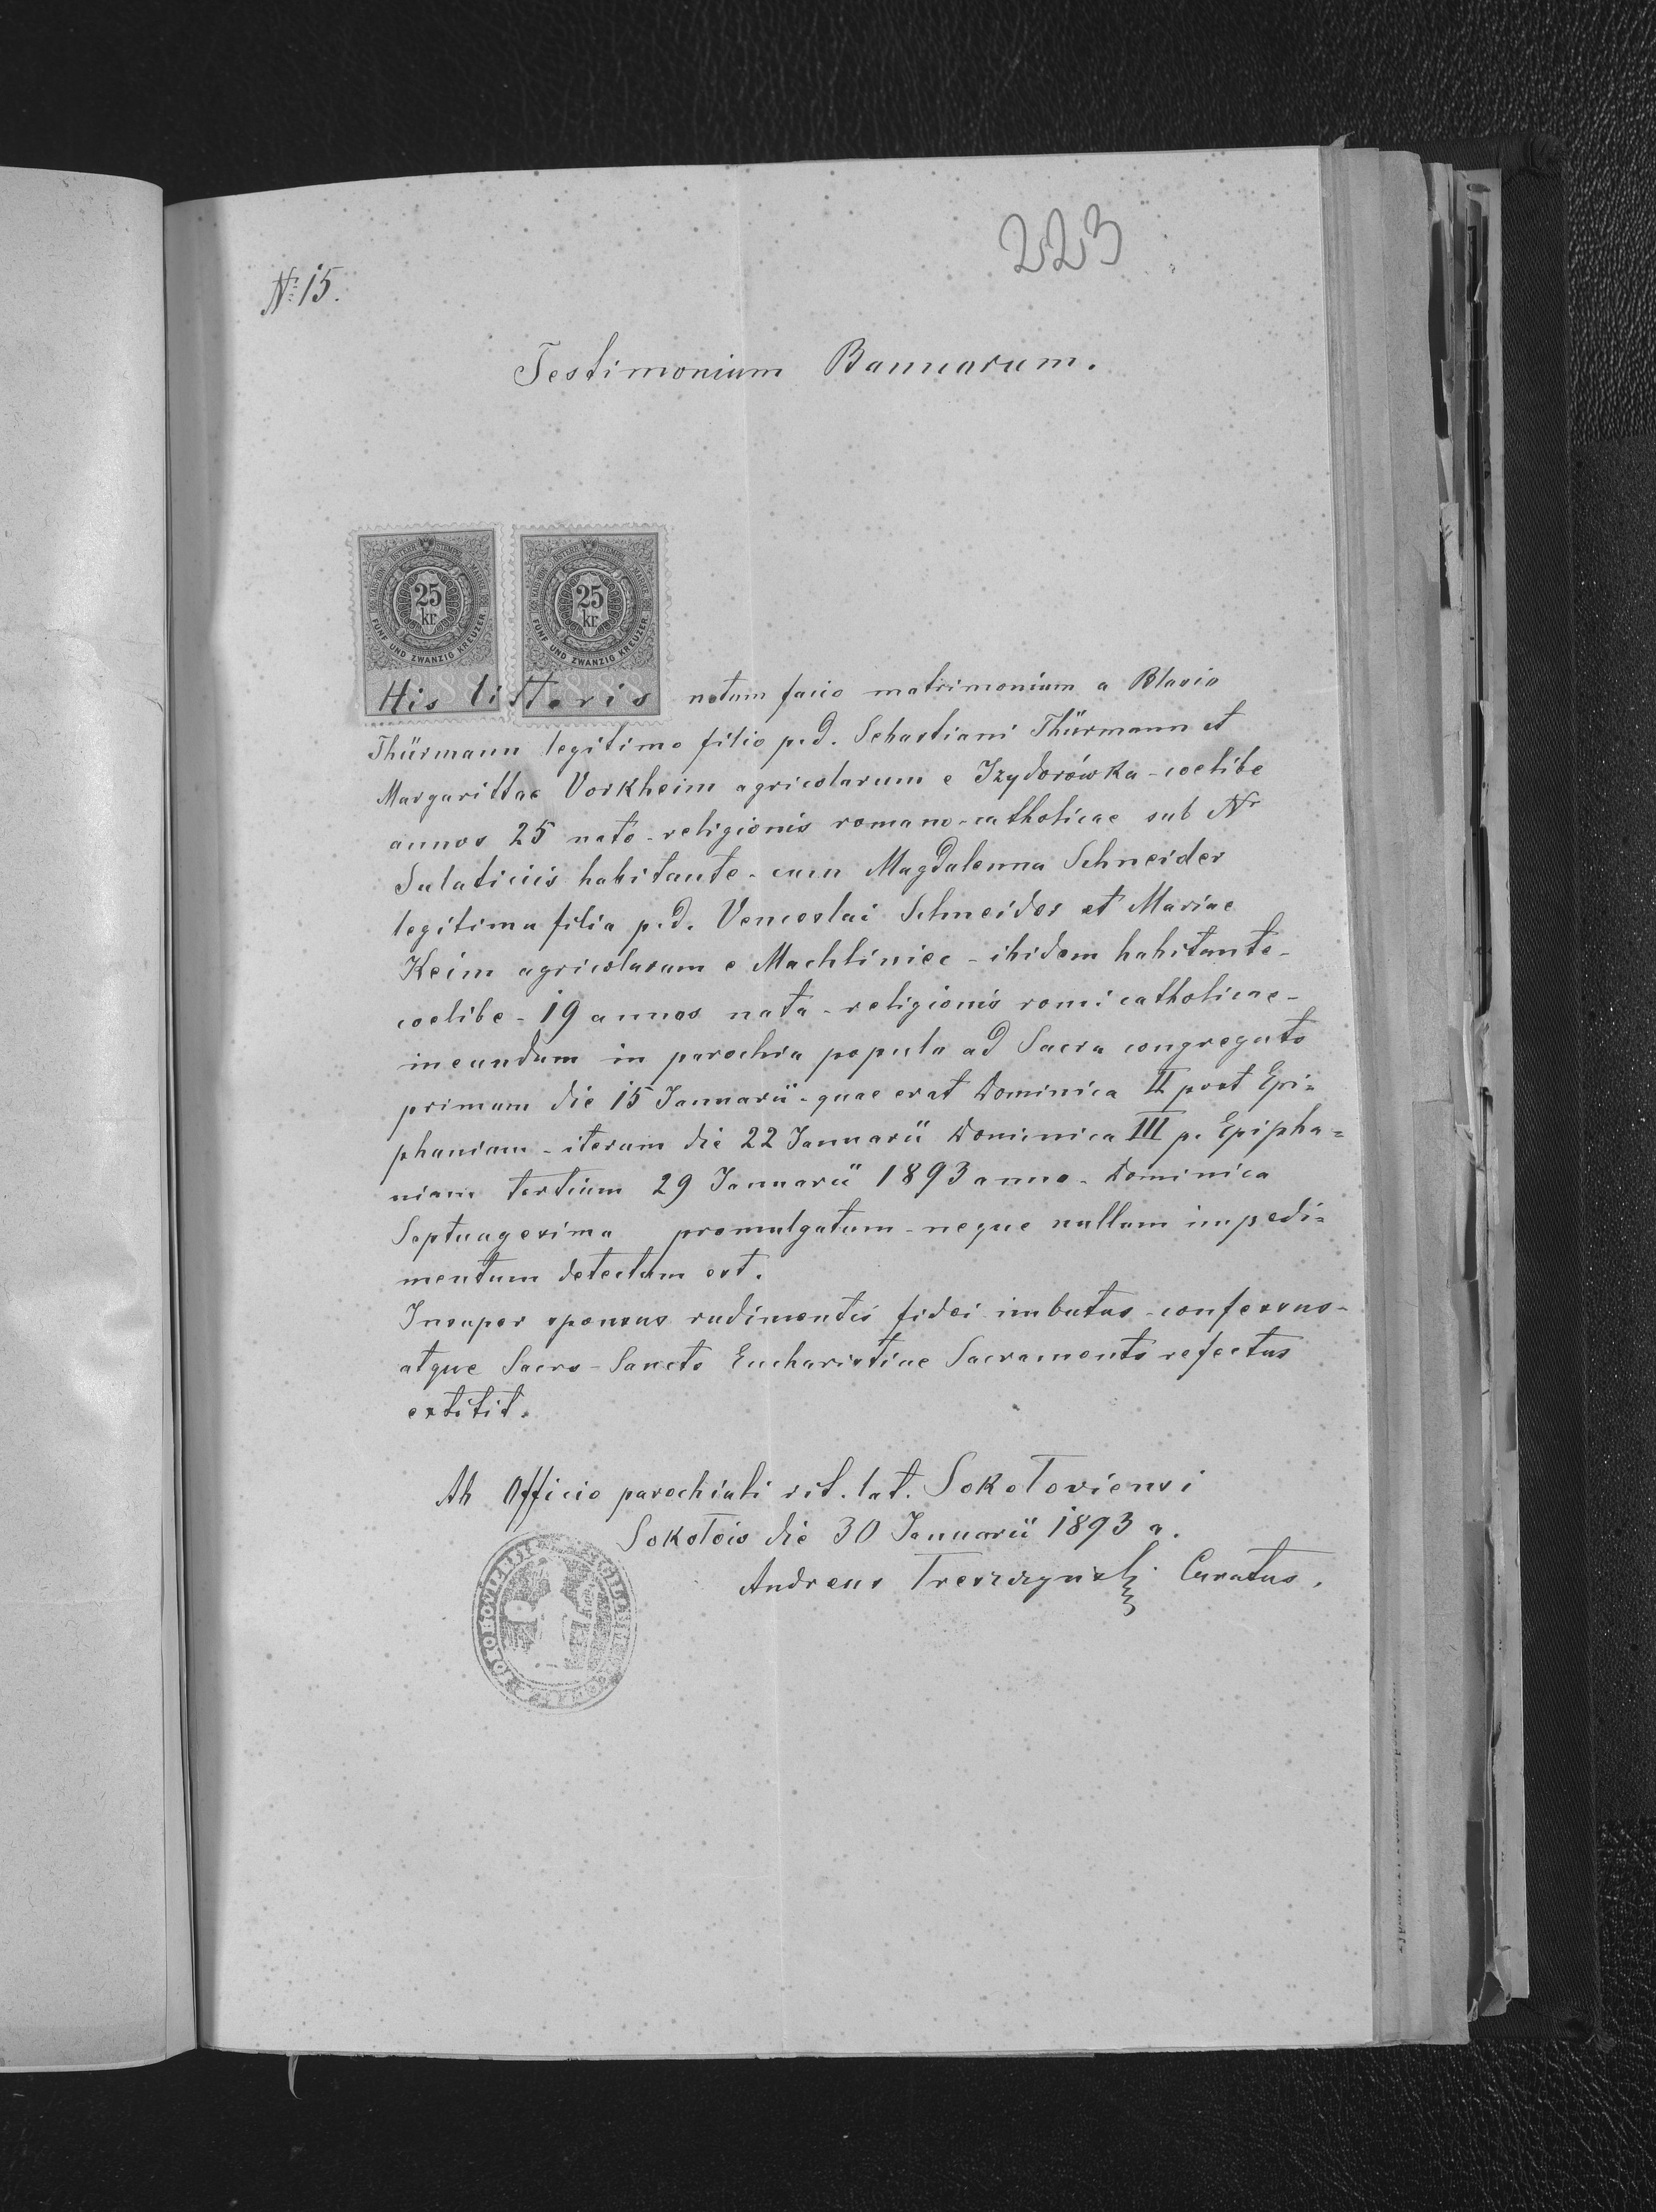 223
№ 15.
Testimonium Bannarum.
25 kr
FÜNF UND ZWANZIG KREUZER
25 kr
FÜNF UND ZWANZIG KREUZER
His litteris notum facio matrimonium a Blasio
Thürmann legitimo filio p.d. Sebastiani Thürmann et
Margarittae Vorkheim agricolarum e Izydorówka - coelibe
annos 25 nato - religionis romano-catholicae sub Nr
Sulaticiis habitante - cum Magdalenna Schneider
legitima filia p.d. Venceslai Schneider et Mariae
Keim agricolarum e Machliniec - ibidem habitante -
coelibe - 19 annos nata - religionis rom: catholicae -
ineundum in parochia populo ad Sacra congregato
primum die 15 Januarii - quae erat Dominica II post Epi=
phaniam - iterum die 22 Januarii Dominica III p. Epipha=
niam tertium 29 Januarii 1893 anno - Dominica
Septuagesima promulgatum - neque nullum impedi=
mentum detectum est.
Insuper sponsus rudimentis fidei imbutus - confessus -
atque Sacro-Sancto Eucharistiae Sacramento refectus
extitit.
Ab Officio parochiali rit. lat. Sokołoviensi
Sokołois die 30 Januarii 1893 a.
Andreas Treszczyński Curatus.